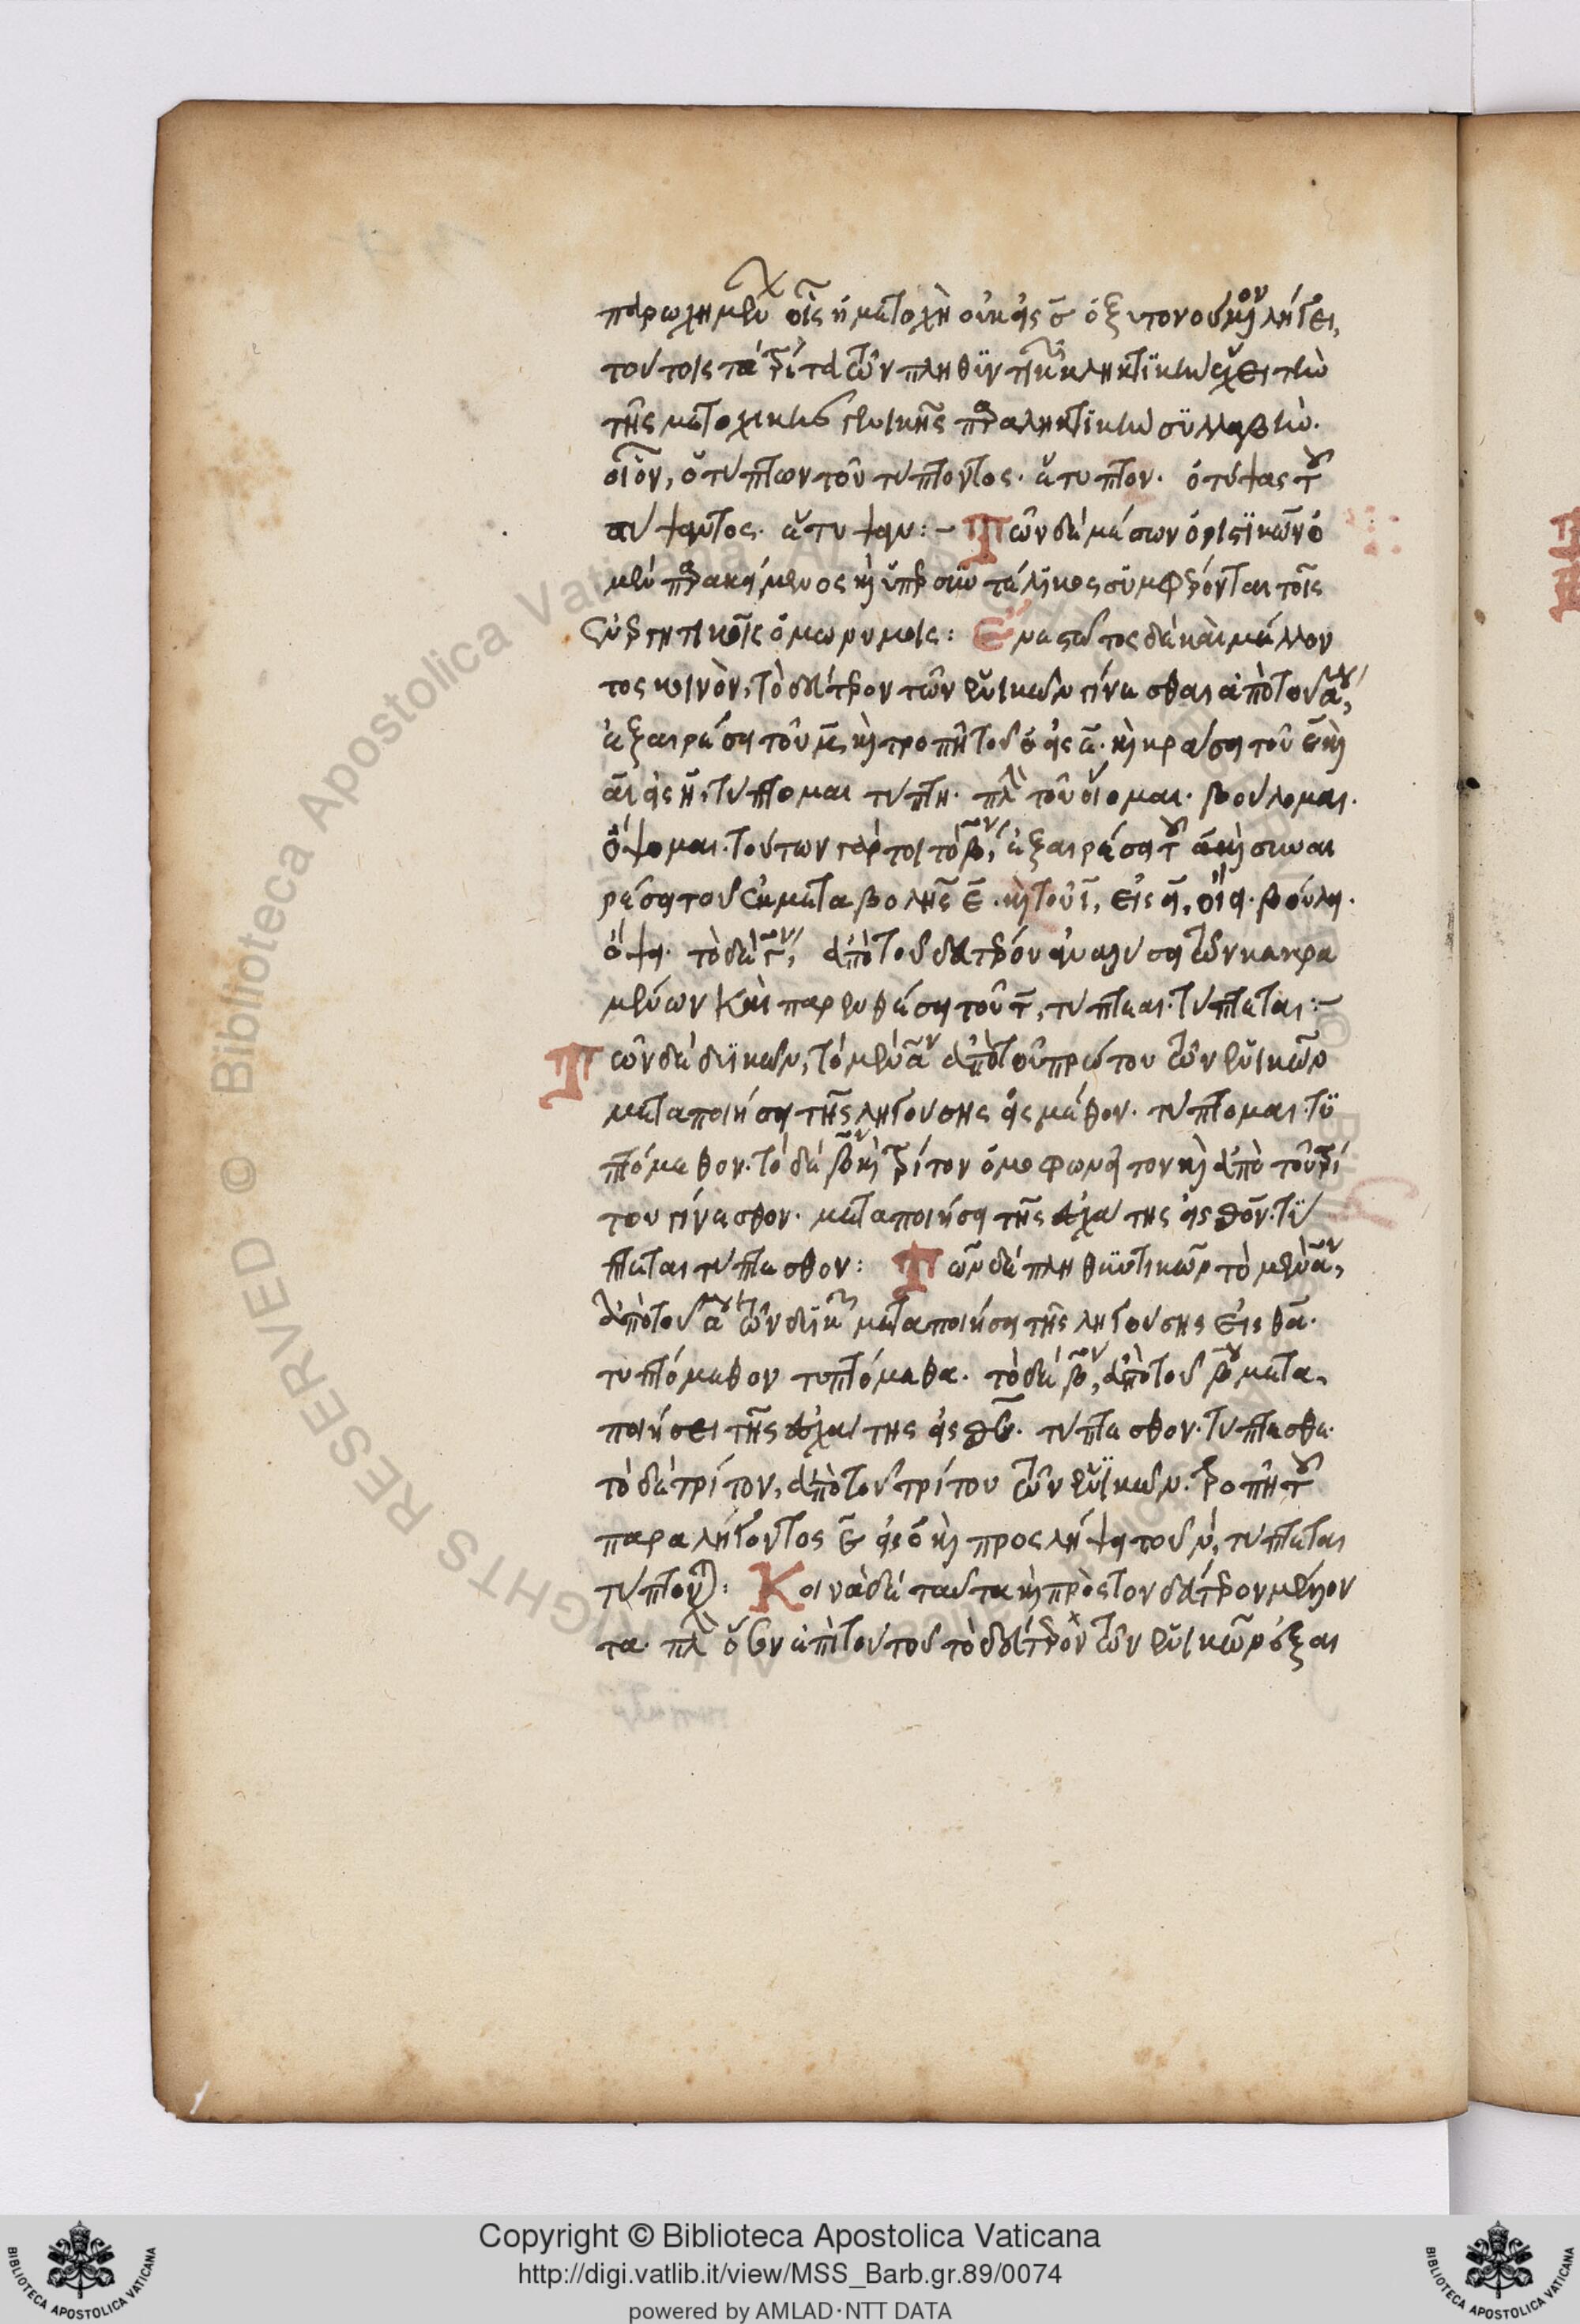 παρωχημένων οἷς ἡ μετοχὴ οὐκ εἰς σ ὀξυτονούμενον λήγει,
τούτοις τὰ τρίτα τῶν πληθυντικῶν ληκτικὴν ἔχει τὴν
τῆς μετοχικῆς γενικῆς παραληκτικὴν συλλαβήν.
οἷον, ὁ τύπτων τοῦ τύπτοντος. ἔτυπτον. ὁ τύψας τοῦ
τύψαντος. ἔτυψαν :– Τῶν δὲ μέσων ὁριστικῶν ὁ
μὲν παρακείμενος καὶ ὑπερσυντέλικος συμφέρονται τοῖς
ἐνεργητικοῖς ὁμωνύμοις : Ἐνεστῶτος δὲ καὶ μέλλον
τος κοινὸν, τὸ δεύτερον τῶν ἑνικῶν γίνεσθαι ἀπὸ τοῦ α^ου,
ἐξαιρέσει τοῦ μ, καὶ τροπῇ τοῦ ο εἰς ε. καὶ κράσει τοῦ ε καὶ
αι εἰς η, τύπτομαι τύπτη. πλὴν τοῦ οἴομαι. βούλομαι.
ὄψομαι. τούτων γάρ τοι τὸ β^ον, ἐξαιρέσει τοῦ α καὶ συναι
ρέσει τοῦ ἐκ μεταβολῆς ε. καὶ τοῦ ι, εἰς ει, οἴει. βούλει.
ὄψει. τὸ δὲ γ^ον, ἀπὸ τοῦ δευτέρου ἀναλύσει τῶν κεκρα
μένων καὶ παρενθέσει τοῦ τ, τύπτεαι. τύπτεται :–
Τῶν δὲ δυϊκῶν, τὸ μὲν α^ον ἀπὸ τοῦ πρώτου τῶν ἑνικῶν
μεταποιήσει τῆς ληγούσης εἰς μεθον. τύπτομαι. τυ
πτόμεθον. τὸ δὲ β^ον καὶ τρίτον ὁμόφωνα τον καὶ ἀπὸ τοῦ τρί
του γίνεσθον. μεταποιήσει τῆς ἐσχάτης εἰς σθον. τύ
πτεται τύπτεσθον : Τῶν δὲ πληθυντικῶν τὸ μὲν α^ον,
ἀπὸ τοῦ α^ου τῶν δυϊκῶν μεταποιήσει τῆς ληγούσης εἰς θα.
τυπτόμεθον τυπτόμεθα. τὸ δὲ β^ον, ἀπὸ τοῦ β^ου μετα
ποιήσει τῆς ἐσχάτης εἰς σθε. τύπτεσθον. τύπτεσθε.
τὸ δὲ τρίτον, ἀπὸ τοῦ τρίτου τῶν ἑνικῶν. τροπῇ τοῦ
παραλήγοντος ε εἰς ο καὶ προσλήψει τοῦ ν, τύπτεται
τύπτονται : Κοινὰ δὲ ταῦτα καὶ πρὸς τὸν δεύτερον μέλλον
τα. πλὴν ὅθεν ἐπὶ τούτου τὸ δεύτερον τῶν ἑνικῶν ἐξαι
Copyright © Biblioteca Apostolica Vaticana
http://digi.vatlib.it/view/MSS_Barb.gr.89/0074
powered by AMLAD·NTT DATA